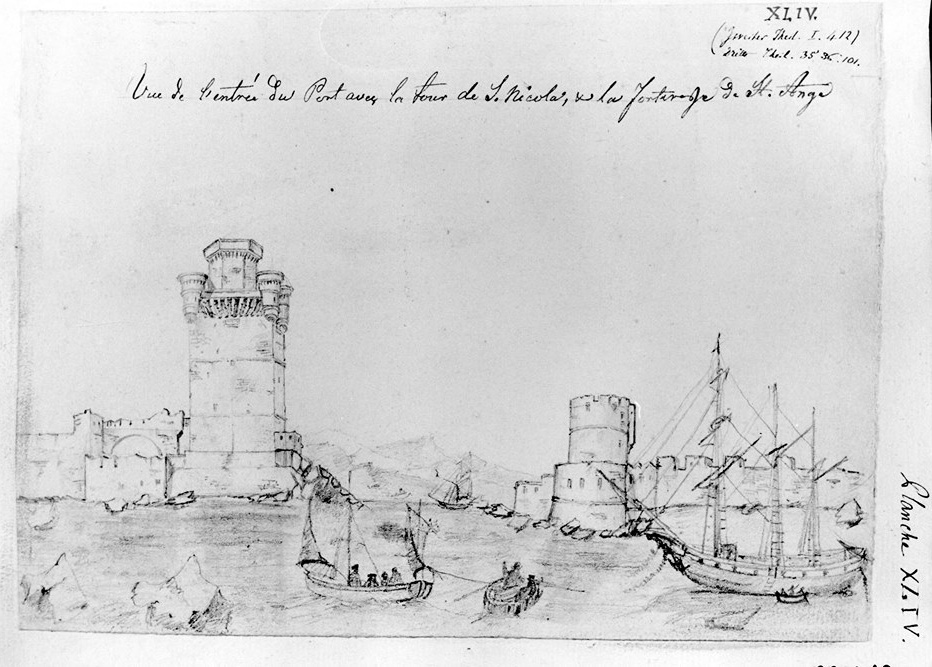 XLIV.
(Zweiter Theil. I. 412)
Dritter Theil.
Vue de l'entrée du Port avec la tour de S. Nicola, & la forteresse de St. Ange
Planche XLIV.